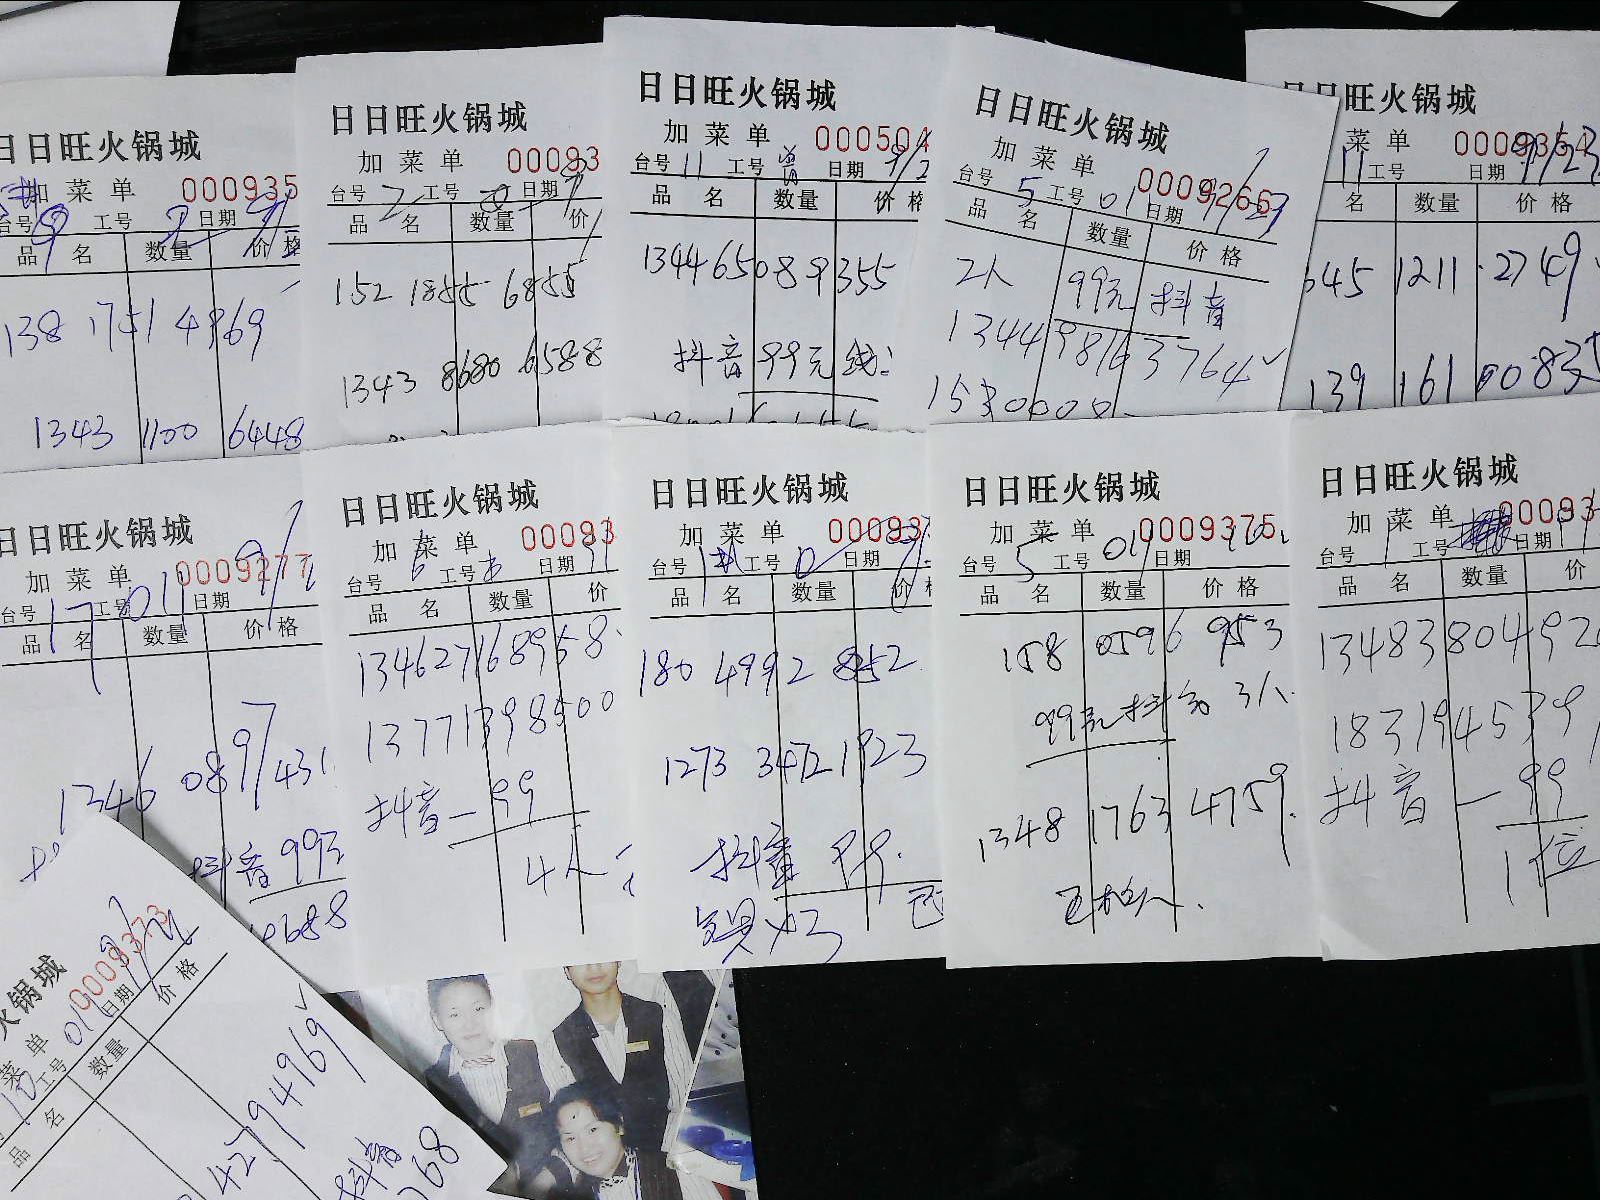 日日旺火锅城
加菜单 000935
台号 9 工号 2 日期
品名 数量 价格
138 1751 4969
1343 1100 6448
日日旺火锅城
加菜单 00093
台号 2 工号 日期
品名 数量 价
152 1855 6855
1343 8680 6588
日日旺火锅城
加菜单 000504
台号 11 工号 日期 9/2
品名 数量 价格
13446508 9 355
抖音 99元
日日旺火锅城
加菜单 0009266
台号 5 工号 01 日期
品名 数量 价格
2人 99元 抖音
1344 9816 3764
日旺火锅城
菜单
11 工号 日期 9/23
名 数量 价格
645 1211 2749
139 161 00835
日日旺火锅城
加菜单 0009277
台号 17 工号 01 日期
品名 数量 价格
1346 0897431
抖音 99元
688
日日旺火锅城
加菜单 00093
台号 6 工号 日期
品名 数量 价
13462716895 8
13771398500
抖音一99
4人
日日旺火锅城
加菜单 00093
台号 工号 日期
品名 数量 价
180 4992 8252
1273 3472 1923
抖音 99.
日日旺火锅城
加菜单 0009375
台号 5 工号 01 日期
品名 数量 价格
158 0596 953
99元抖音 3人
1348 1763 4759
日日旺火锅城
加菜单 00093
台号 1 工号 日期
品名 数量 价
13483804920
183194539
抖音 一 99
1位
火锅城
菜单 0009373
10 工号 01 日期
品名 数量 价格
42794969
抖音
068